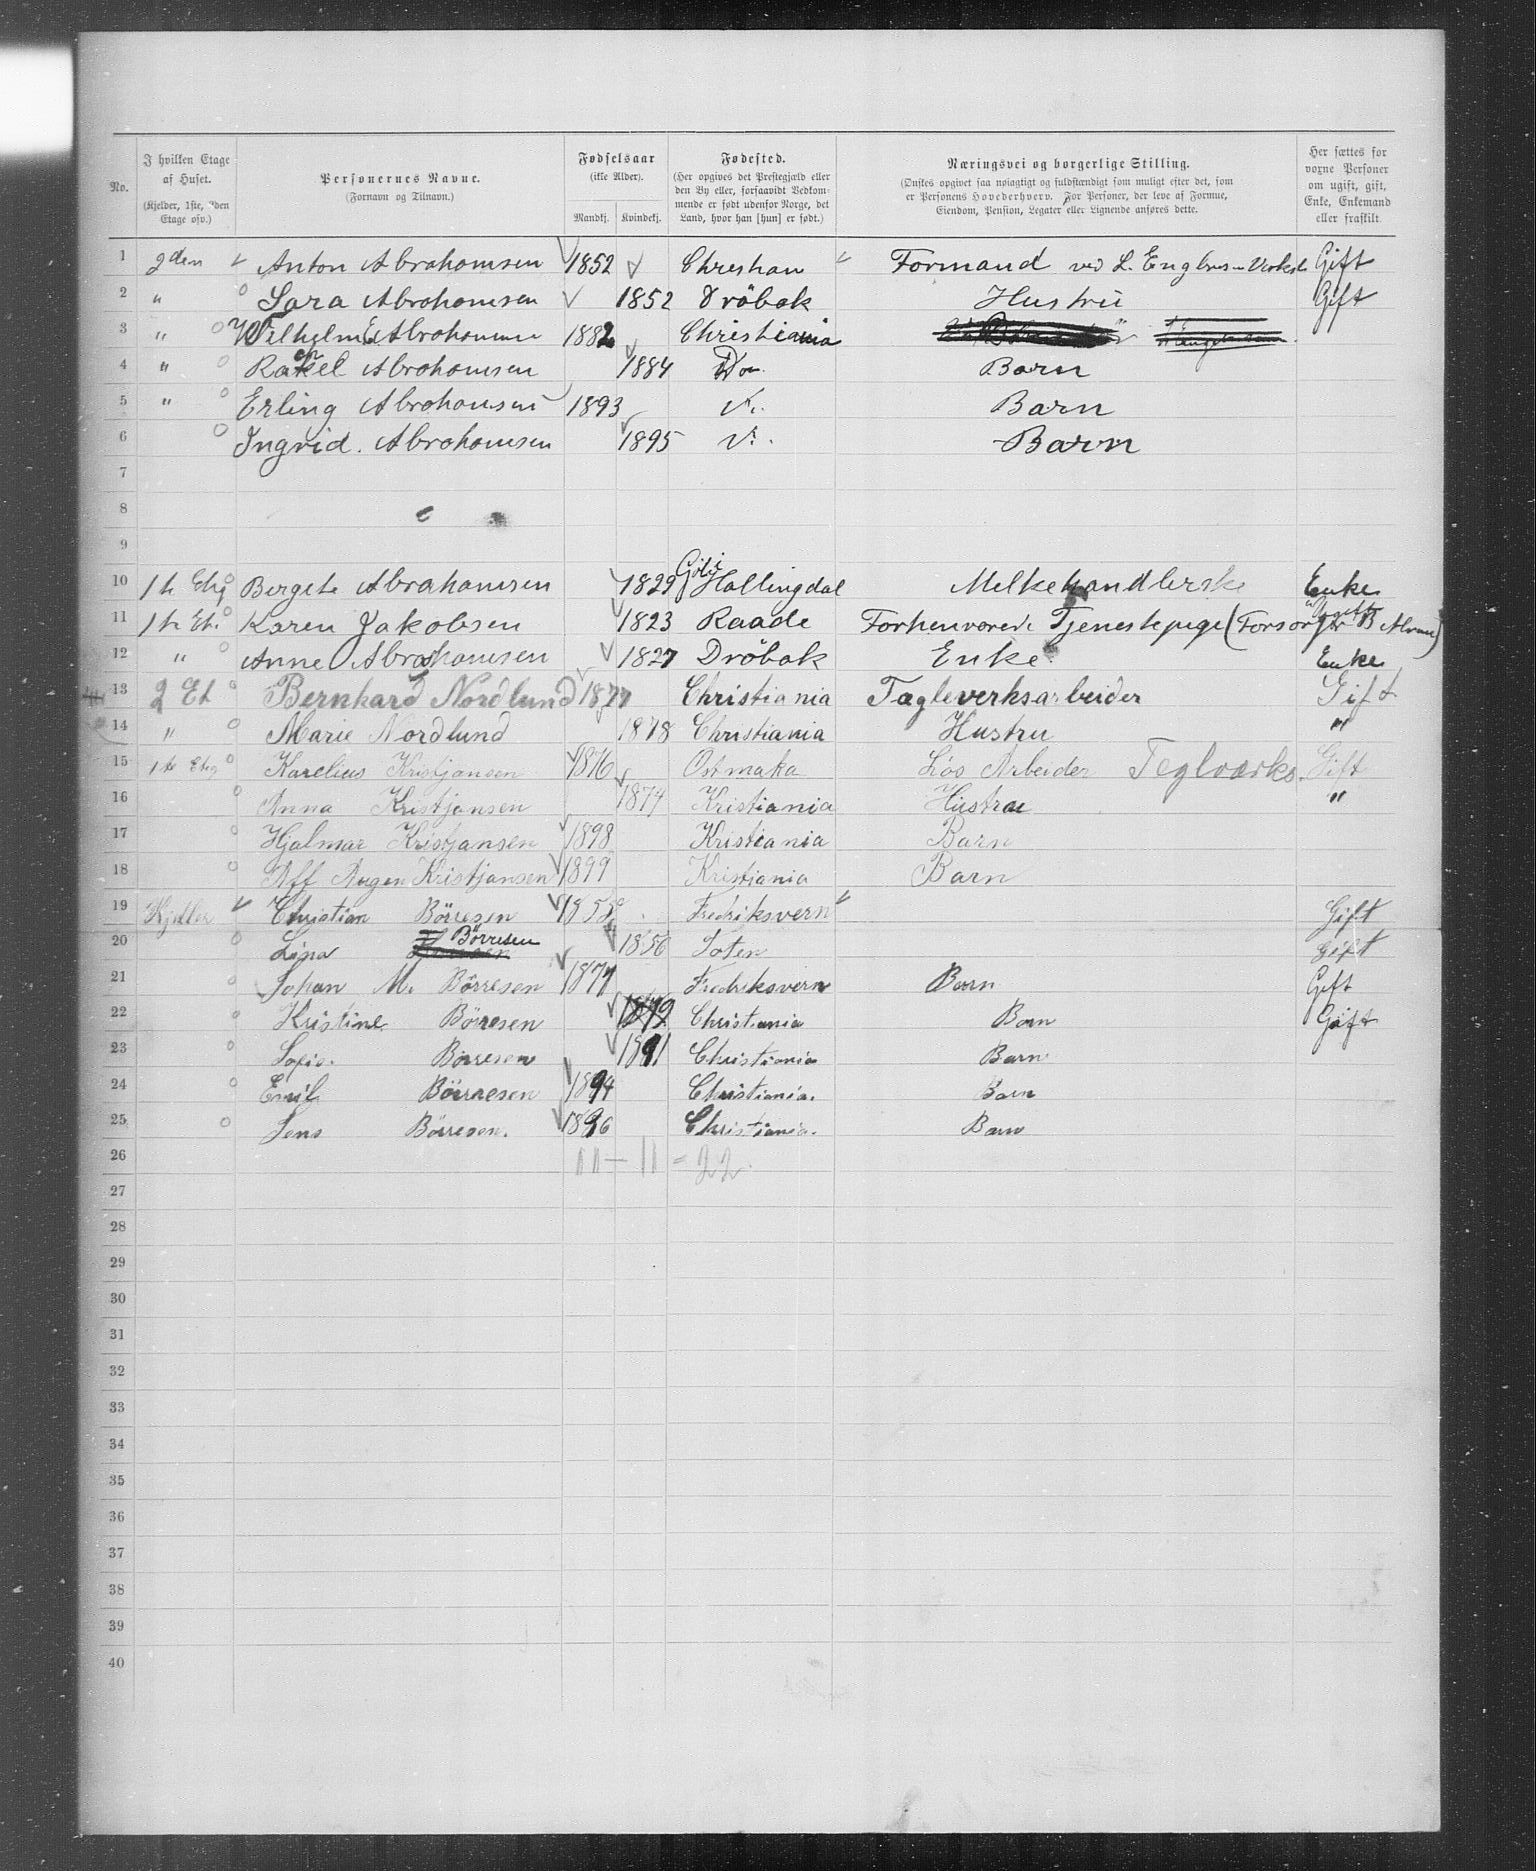 No. I hvilken Etage af Huset. (Kjelder, 1ste, 2den Etage osv.) Personernes Navne. (Fornavn og Tilnavn.) Fødselsaar (ikke Alder). Mandkj. Kvindekj. Fødested. (Her opgives det Prestegjæld eller den By eller, forsaavidt Vedkommende er født udenfor Norge, det Land, hvor han [hun] er født.) Næringsvei og borgerlige Stilling. (Ønskes opgivet saa nøiagtigt og fuldstændigt som muligt efter det, som er Personens Hovederhverv. For Personer, der leve af Formue, Eiendom, Pension, Legater eller Lignende anføres dette. Her sættes for voxne Personer om ugift, gift, Enke, Enkemand eller fraskilt.
1 2den Anton Abrahamsen 1852 Formand ved L. Gift
2 " Sara Abrahamsen 1852 Dröbak Hustru Gift
3 " Abrahamsen 1882 Christiania
4 " Rakel Abrahamsen 1884 Do. Barn
5 " Erling Abrahamsen 1893 Barn
6 Ingrid. Abrahamsen 1895 Barn
7
8
9
10 1te Etg Bergete Abrahamsen 1829 Hallingdal Melkehandlerske Enke
11 1te Et. Karen Jakobsen 1823 Raade Forhenværende Tjenestepige (Forsorges
12 " Anne Abrahamsen 1827 Dröbak Enke Enke
13 2 Et Bernhard Nordlund 1877 Christiania Tagleverksarbeider Gift
14 " Marie Nordlund 1878 Christiania Hustru "
15 1te Etg Karelius Kristjansen 1876 Løs Arbeider Teglværks. Gift
16 Anna Kristjansen 1874 Kristiania Hustrue "
17 Hjalmar Kristjansen 1898 Kristiania Barn
18 Kristjansen 1899 Kristiania Barn
19 Kjelder Christian Börresen 1855 Fredriksvern Gift
20 Lina Börresen 1856 Toten Gift
21 Johan M. Börresen 1877 Fredriksvern Barn Gift
22 Kristine Börresen 1879 Christiania Barn Gift
23 Sofie. Börresen 1891 Christiania Barn
24 Emil Börresen 1894 Christiania. Barn
25 Jens Börresen. 1896 Christiania. Barn
26 11 — 11 = 22.
27
28
29
30
31
32
33
34
35
36
37
38
39
40